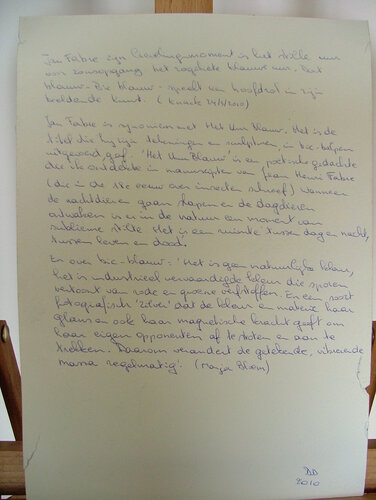 Jan Fabre zijn lievelingsmoment is het stille uur
voor zonsopgang het zogehete blauwe uur. Dat
blauw - Bic blauw - speelt een hoofdrol in zijn
beeldende kunst. ( 24/4/2010)
Jan Fabre is synoniem met Het Uur Blauw. Het is de
titel die hij zijn tekeningen en sculpturen, in bic-balpen
uitgevoerd gaf. 'Het Uur Blauw' is een poëtische gedachte
die hij ontdekte in manuscripten van Jean Henri Fabre
(die in die 18e eeuw over insecten schreef) Wanneer
de nachtdieren gaan slapen en de dagdieren
ontwaken is er in de natuur een moment van
sublieme stilte Het is een ruimte tussen dag en nacht,
tussen leven en dood.
En over bic-blauw: 'Het is geen natuurlijke kleur,
het is industrieel vervaardigde kleur die sporen
vertoont van rode en groene verfstoffen. En een soort
fotografisch 'zilver' dat de kleur en materie haar
glans en ook haar magnetische kracht geeft om
haar eigen opponenten af te stoten en aan te
trekken. Daarom verandert de getekende, vibrerende
massa regelmatig'. (Marja Bloem)
2010